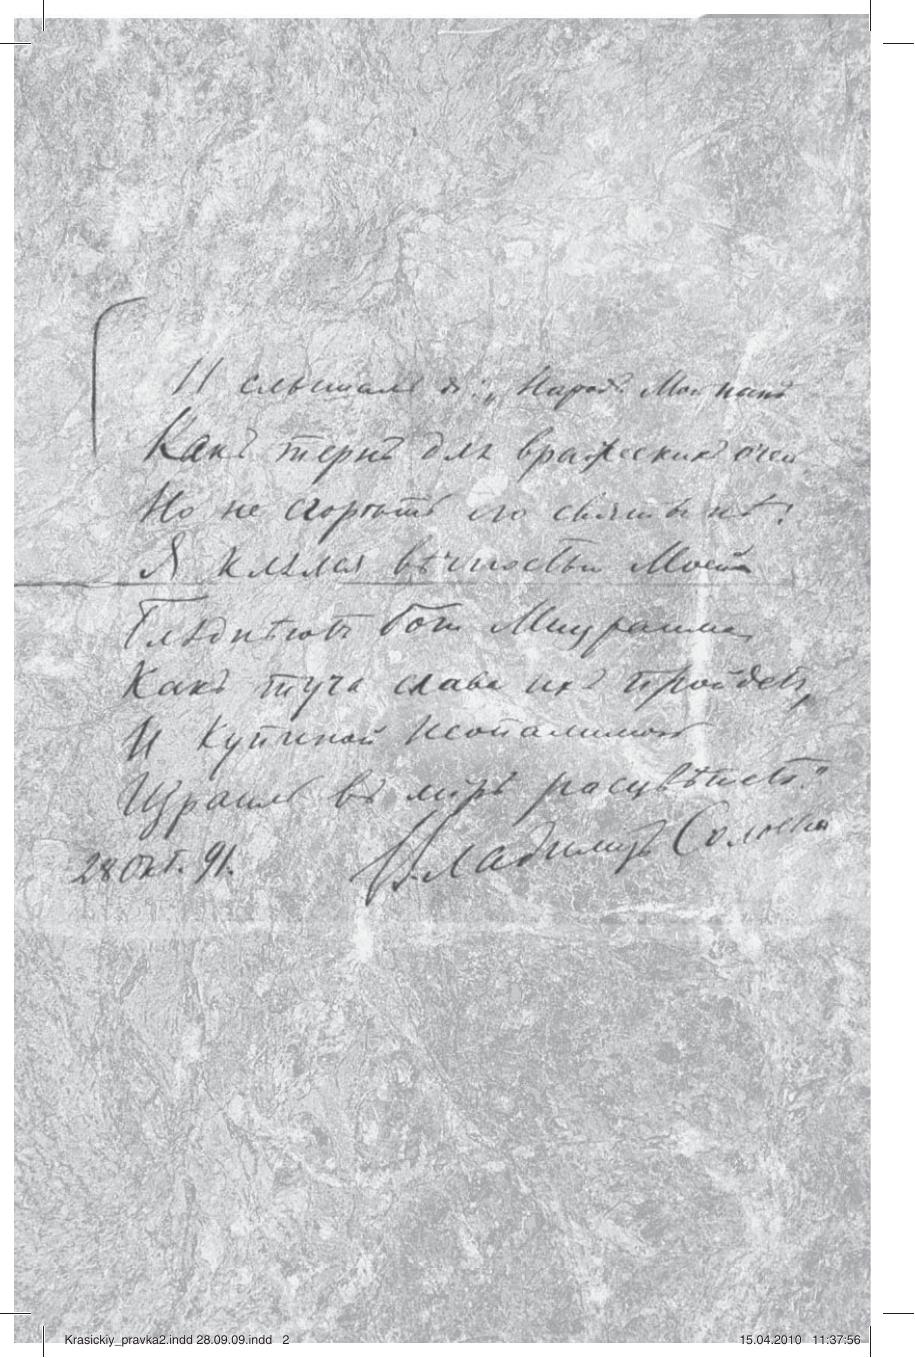 И слышалъ я: „Народъ Мой нынѣ
Какъ тернъ для вражескихъ очей
Но не сгорѣть его святынѣ:
Я клялся вѣчностью Моей
Блѣднѣютъ боги Мицраима,
Какъ туча слава ихъ пройдетъ,
И Купиной Неопалимой
Израиль въ мірѣ расцвѣтетъ."
28 Окт. 91. Владиміръ Соловьевъ
Krasickiy_pravka2.indd 28.09.09.indd 2 15.04.2010 11:37:56